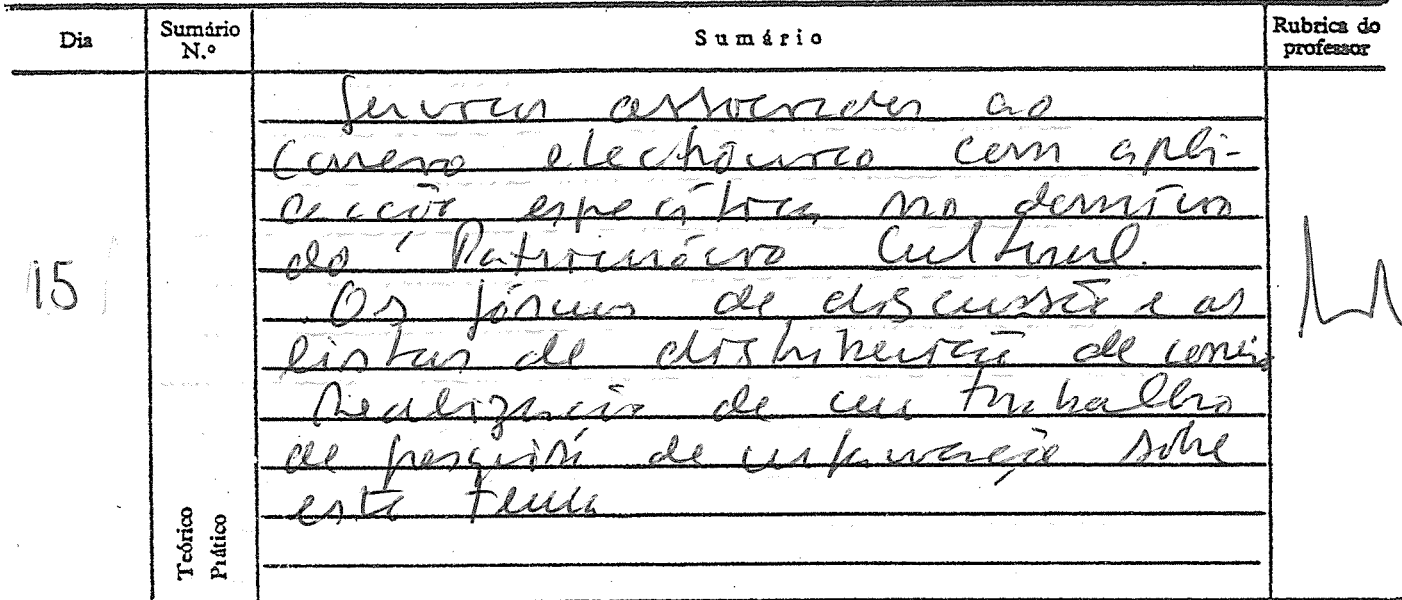 Dia
Sumário N.º
Sumário
Rubrica do professor
15
Serviços associados ao
correio electrónico com apli-
cação específica no domínio
do Património Cultural.
Os fóruns de discussão e as
listas de distribuição de correio
Realização de um trabalho
de pesquisa de informação sobre
este tema
Teórico
Prático